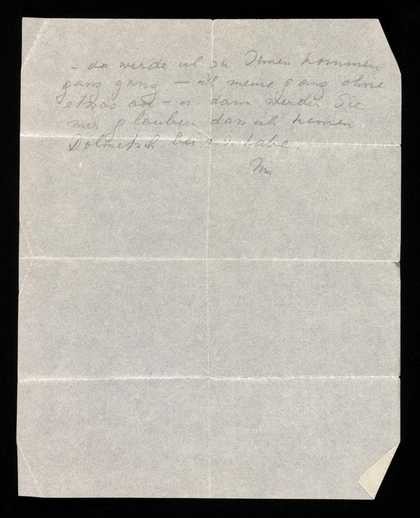 – da werde ich zu Ihnen kommen
ganz ganz – ich meine ganz ohne
etwas an – u. dann werden Sie
mir glauben dass ich keinen
Dolmetsch bei mir habe.